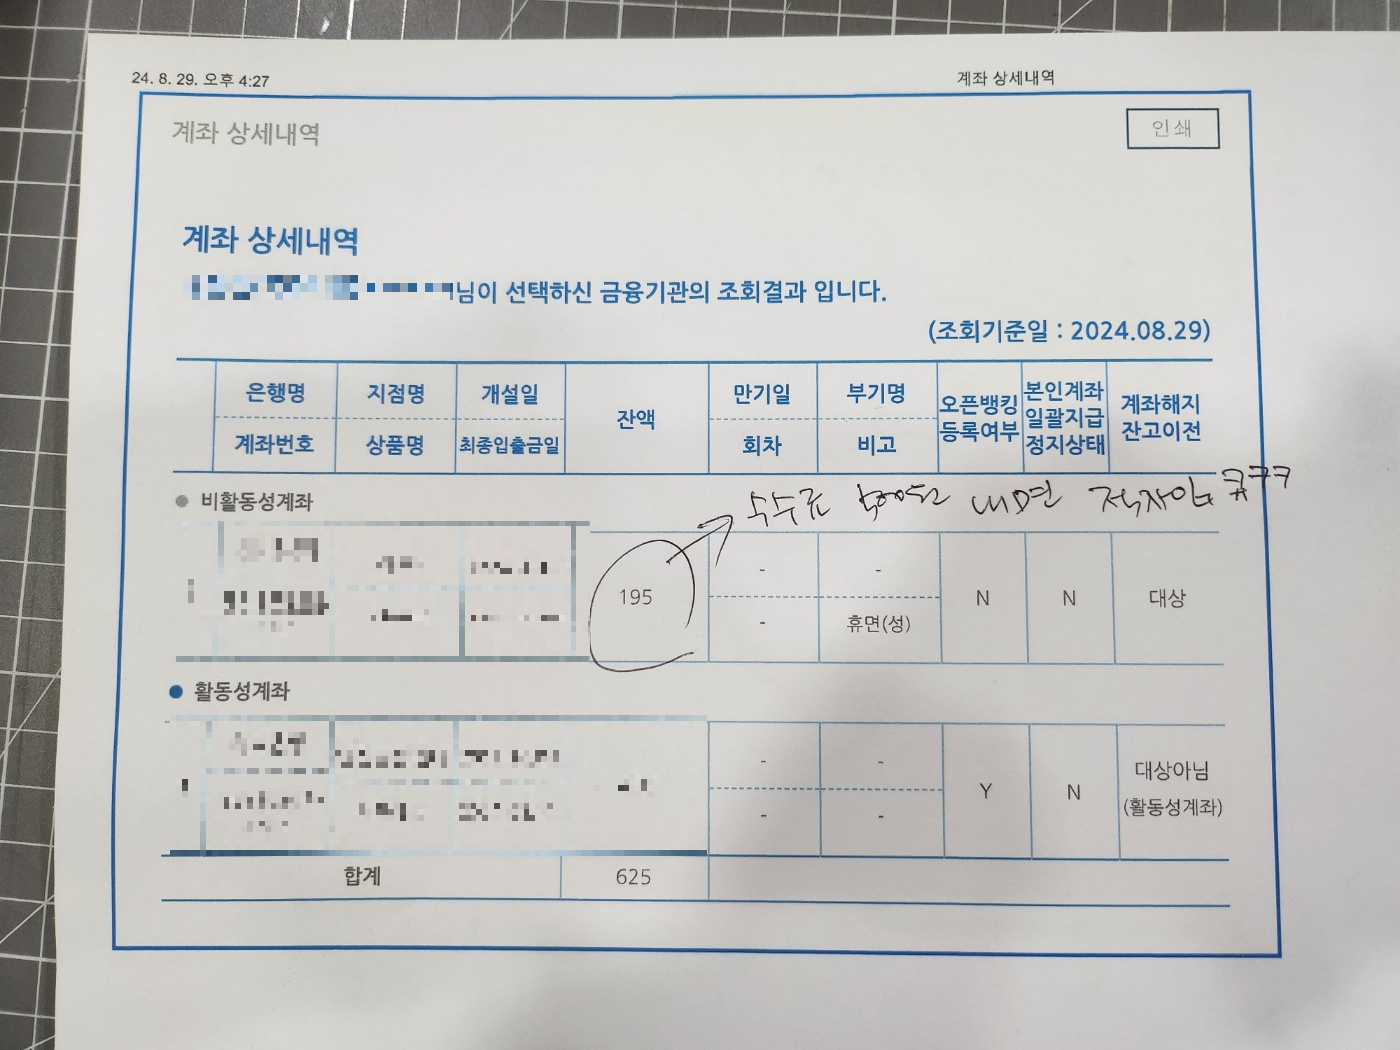 24. 8. 29. 오후 4:27
계좌 상세내역
계좌 상세내역
인쇄
계좌 상세내역
님이 선택하신 금융기관의 조회결과 입니다.
(조회기준일 : 2024.08.29)
은행명 지점명 개설일 잔액 만기일 부기명 오픈뱅킹 등록여부 본인계좌 일괄지급 정지상태 계좌해지 잔고이전
계좌번호 상품명 최종입출금일 회차 비고
비활동성계좌
수수료 내면 적자임 ㅋㅋㅋ
195 - - N N 대상
- 휴면(성)
활동성계좌
- - Y N 대상아님
- - (활동성계좌)
합계 625